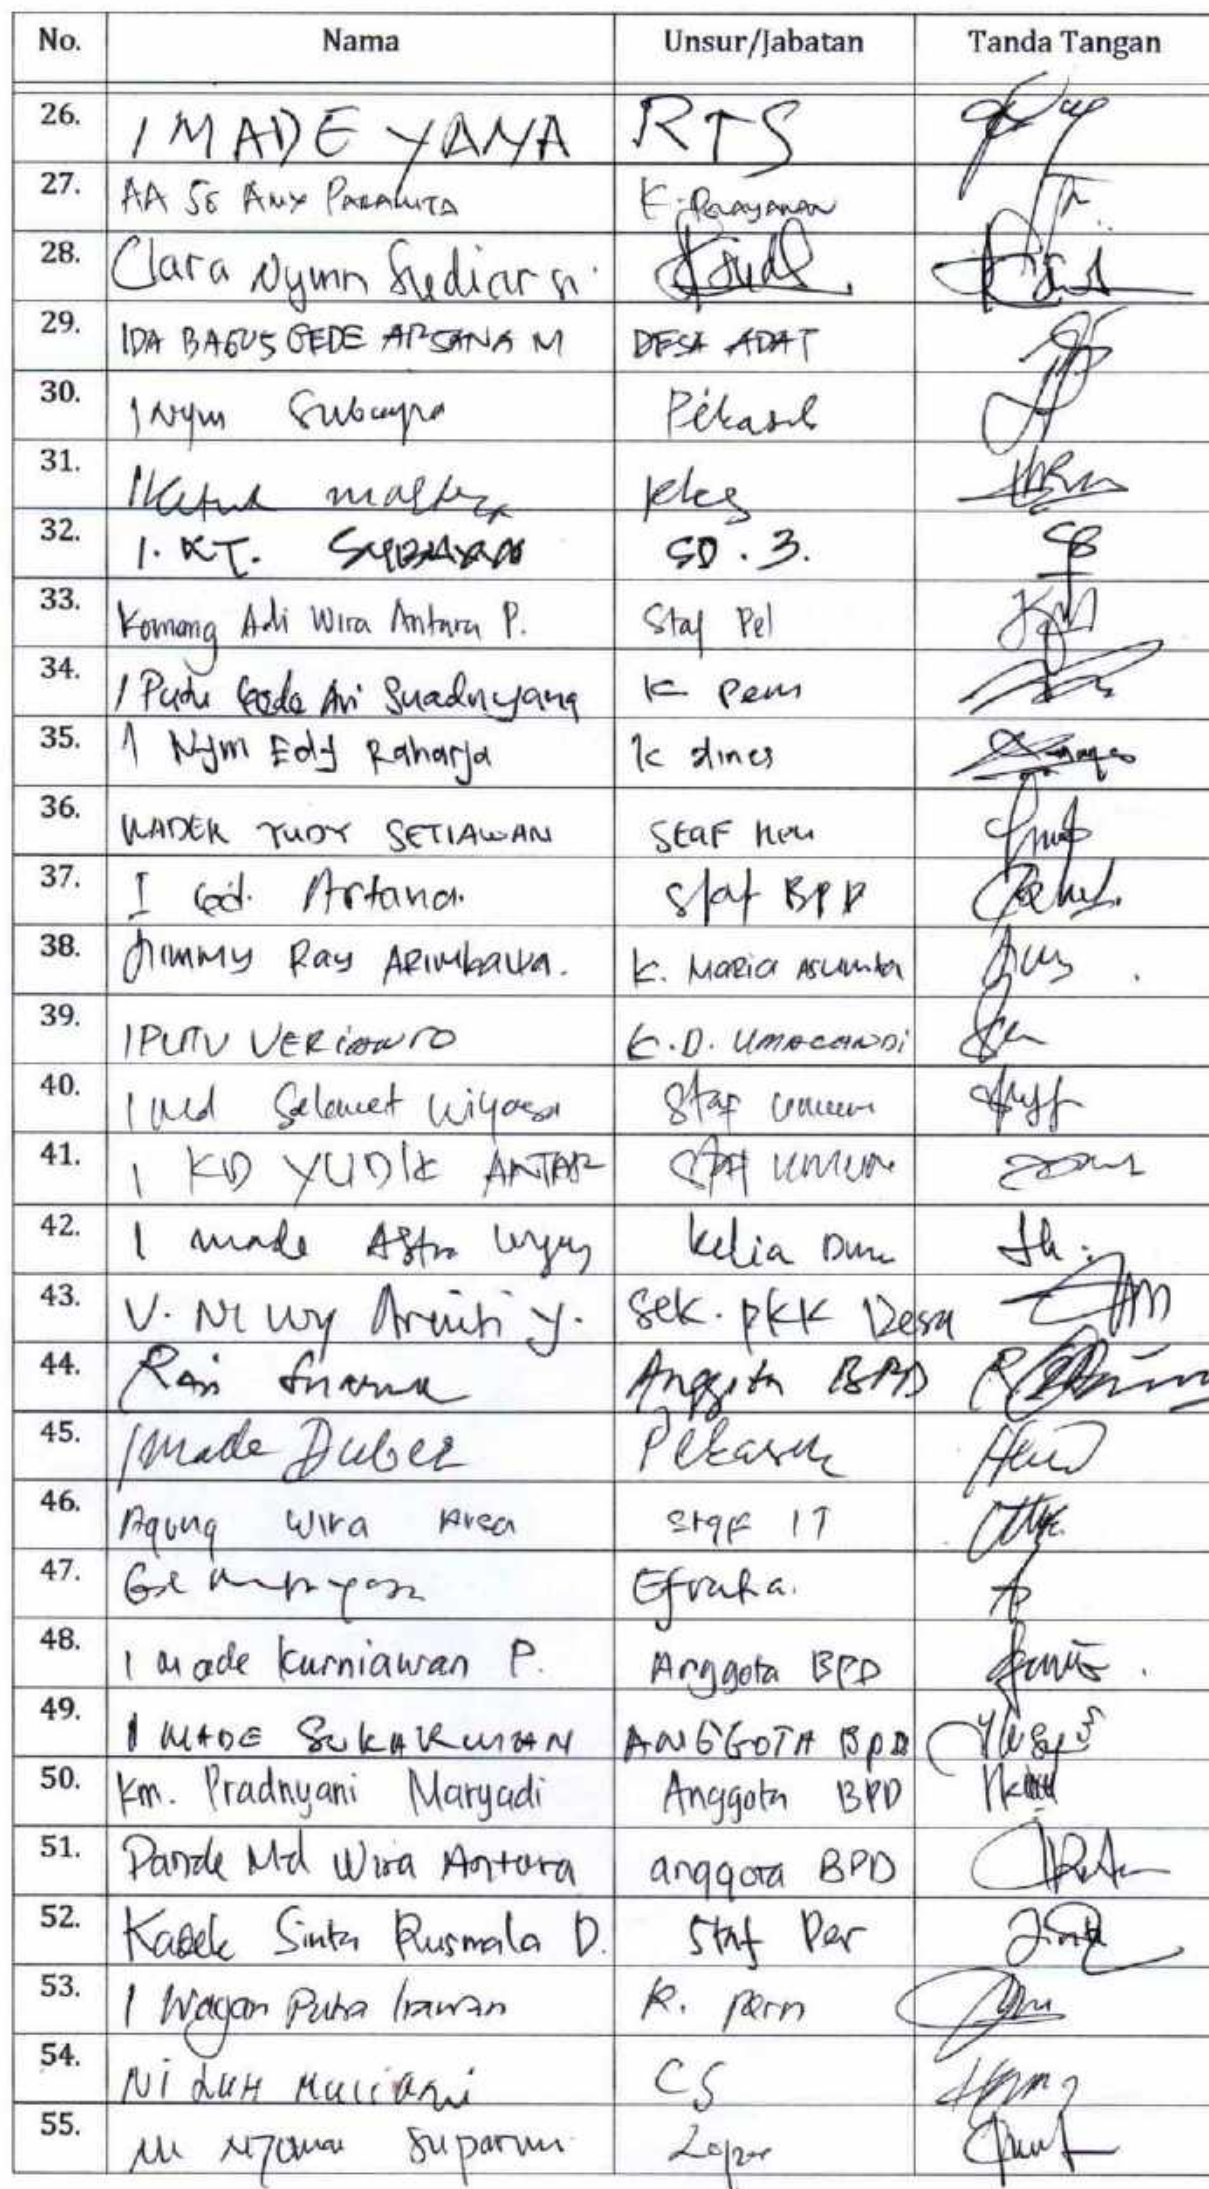 No. Nama Unsur/Jabatan Tanda Tangan
26. I MADE YANA RTS
27. AA SG ANY PARAMITA K. Pelayanan
28. Clara Nymn Sudiarsi
29. IDA BAGUS GEDE ARSANA M DESA ADAT
30. I Nym Pekaseh
31. I Ketut
32. I. KT. SD. 3.
33. Komang Adi Wira Antara P. Staf Pel
34. I Putu Gede Ari Suadnyana K Pem
35. I Nym Edy Raharja K dines
36. KADEK YUDY SETIAWAN STAF
37. I Gd. Artana. Staf BPD
38. Jimmy Ray Arimbawa. K. MARIA ASUMTA
39. I PUTU VERIANTO K.D. UMACANDI
40. I Md Selamet Wiyasa Staf umum
41. I KD YUDIK ANTAR Staf UMUM
42. I made Astra
43. V. Ni Wy Arwiti Y. Sek. PKK Desa
44. Rai Anggota BPD
45. I Made Duber Pekaseh
46. Agung Wira Staf IT
47. Efrata.
48. I Made Kurniawan P. Anggota BPD
49. I MADE SUKARMAN ANGGOTA BPD
50. Km. Pradnyani Maryadi Anggota BPD
51. Pande Md Wira Antara anggota BPD
52. Kadek Sinta Kusmala D. Staf Per
53. I Wayan Putra Irawan K. Pem
54. Ni LUH Muliani CS
55. Ni Suparmi